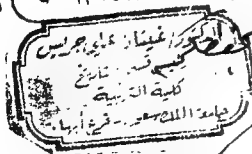 الدكتور / غيثان علي جريس
قسم تاريخ
كلية التربية
جامعة الملك سعود - فرع أبها